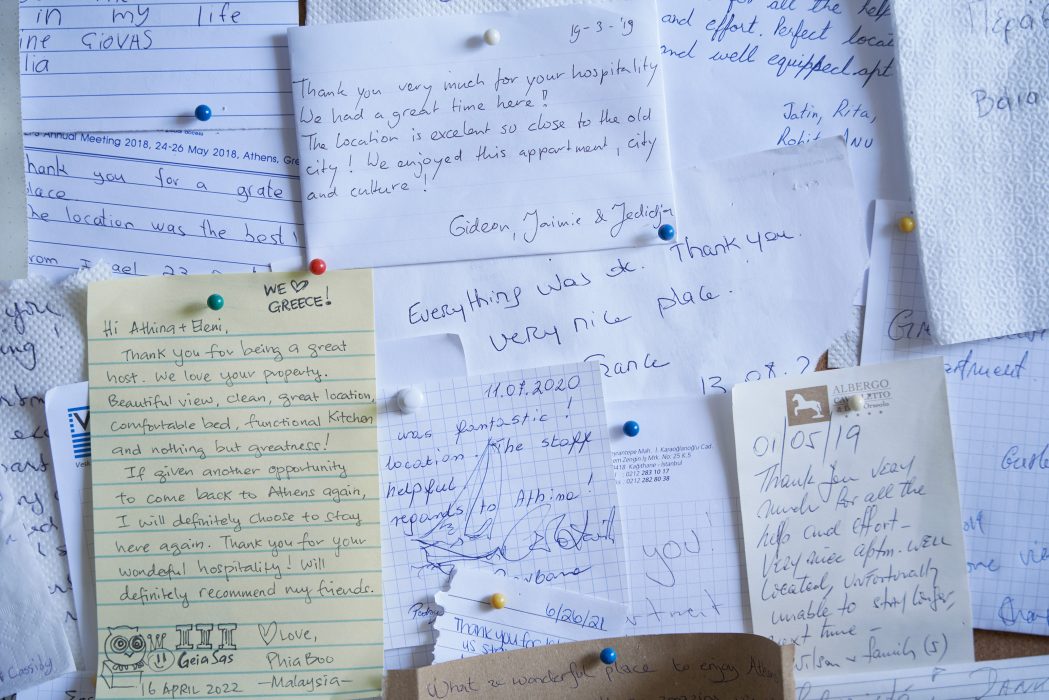 in my life
GIOVAS
lia
Annual Meeting 2018, 24-26 May 2018, Athens, Gre
hank you for a grate
lace.
he location was the best!
19-3-'19
Thank you very much for your hospitality
We had a great time here!
The location is excelent so close to the old
city! We enjoyed this appartment, city
and culture!
Gideon, Jaimie & Jedidja
for all the help
and effort. Perfect locat
and well equipped apt.
Jatin, Rita,
Rohit, ANU
Everything was ok. Thank you.
very nice place.
WE ♡
GREECE!
Hi Athina + Eleni,
Thank you for being a great
host. We love your property.
Beautiful view, clean, great location,
comfortable bed, functional kitchen
and nothing but greatness!
If given another opportunity
to come back to Athens again,
I will definitely choose to stay
here again. Thank you for your
wondeful hospitality! Will
definitely recommend my friends.
GeiaSas
♡ Love,
PhiaBoo
-Malaysia-
16 APRIL 2022
11.07.2020
was fantastic!
location. The staff
helpful
regards to Athina!
Karaoğlanoğlu Cad.
No: 25 K.5
Kağıthane - İstanbul
0212 283 10 17
0212 282 80 38
you!
6/26/21
Thank you for
us
What a wonderful place to enjoy Athen
ALBERGO
01/05/19
Thank you very
much for all the
help and effort -
Very nice aptm. well
located, unfortunally
unable to stay longer,
next time -
Wilson & family (5)
Cassiby